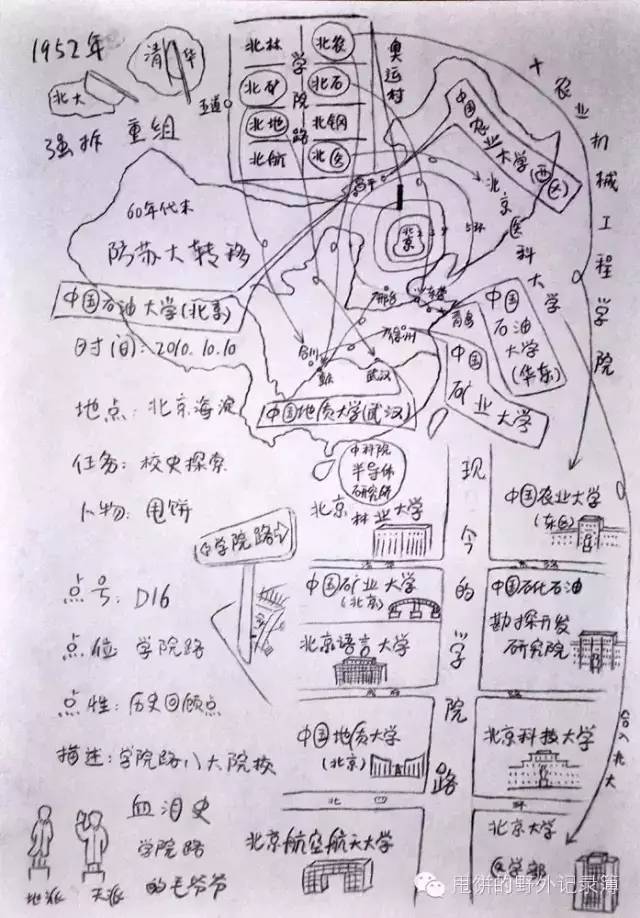 1952年
清华
北大
强拆 重组
北林
北农
北矿
北石
北地
北钢
北航
北医
学院路
五道口
奥运村
农业机械工程学院
中国农业大学(西区)
昌平
北京医科大学
5环
北京
60年代末
防苏大转移
中国石油大学(北京)
时间:2010.10.10
邢台
东营
青岛
徐州
中国石油大学(华东)
中国矿业大学
合川
重庆
武汉
中国地质大学(武汉)
地点:北京海淀
任务:校史探索
人物:甩饼
中科院
半导体
研究所
北京
林业大学
现今的学院路
中国农业大学
(东区)
学院路
点号:D16
点位:学院路
点性:历史回顾点
描述:学院路八大院校
血泪史
学院路
的毛爷爷
地派
天派
清华
东路
中国矿业大学
(北京)
中国石化石油
勘探开发
研究院
北京语言大学
成府
路
中国地质大学
(北京)
北京科技大学
北四
环
北京航空航天大学
北京大学
医学部
合入北大
甩饼的野外记录簿